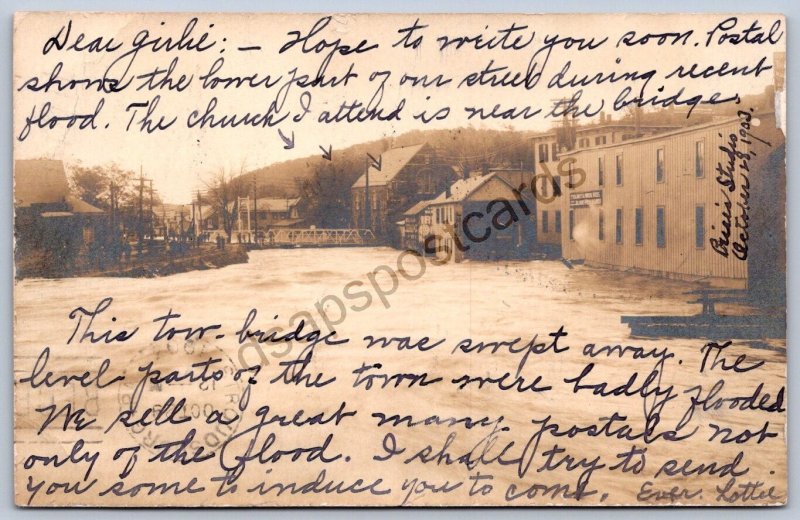 Dear Girlie: – Hope to write you soon. Postal
shows the lower part of our street during recent
flood. The church I attend is near the bridge.
Price's Studio
October 1903.
This tow-bridge was swept away. The
level parts of the town were badly flooded
We sell a great many postals not
only of the flood. I shall try to send
you some to induce you to come. Ever. Lottie
dsapspostcards.com